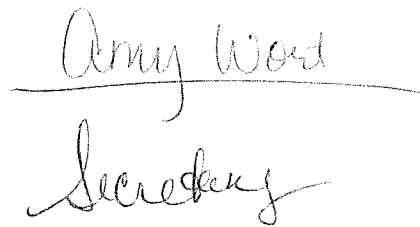 Amy Word
Secretary